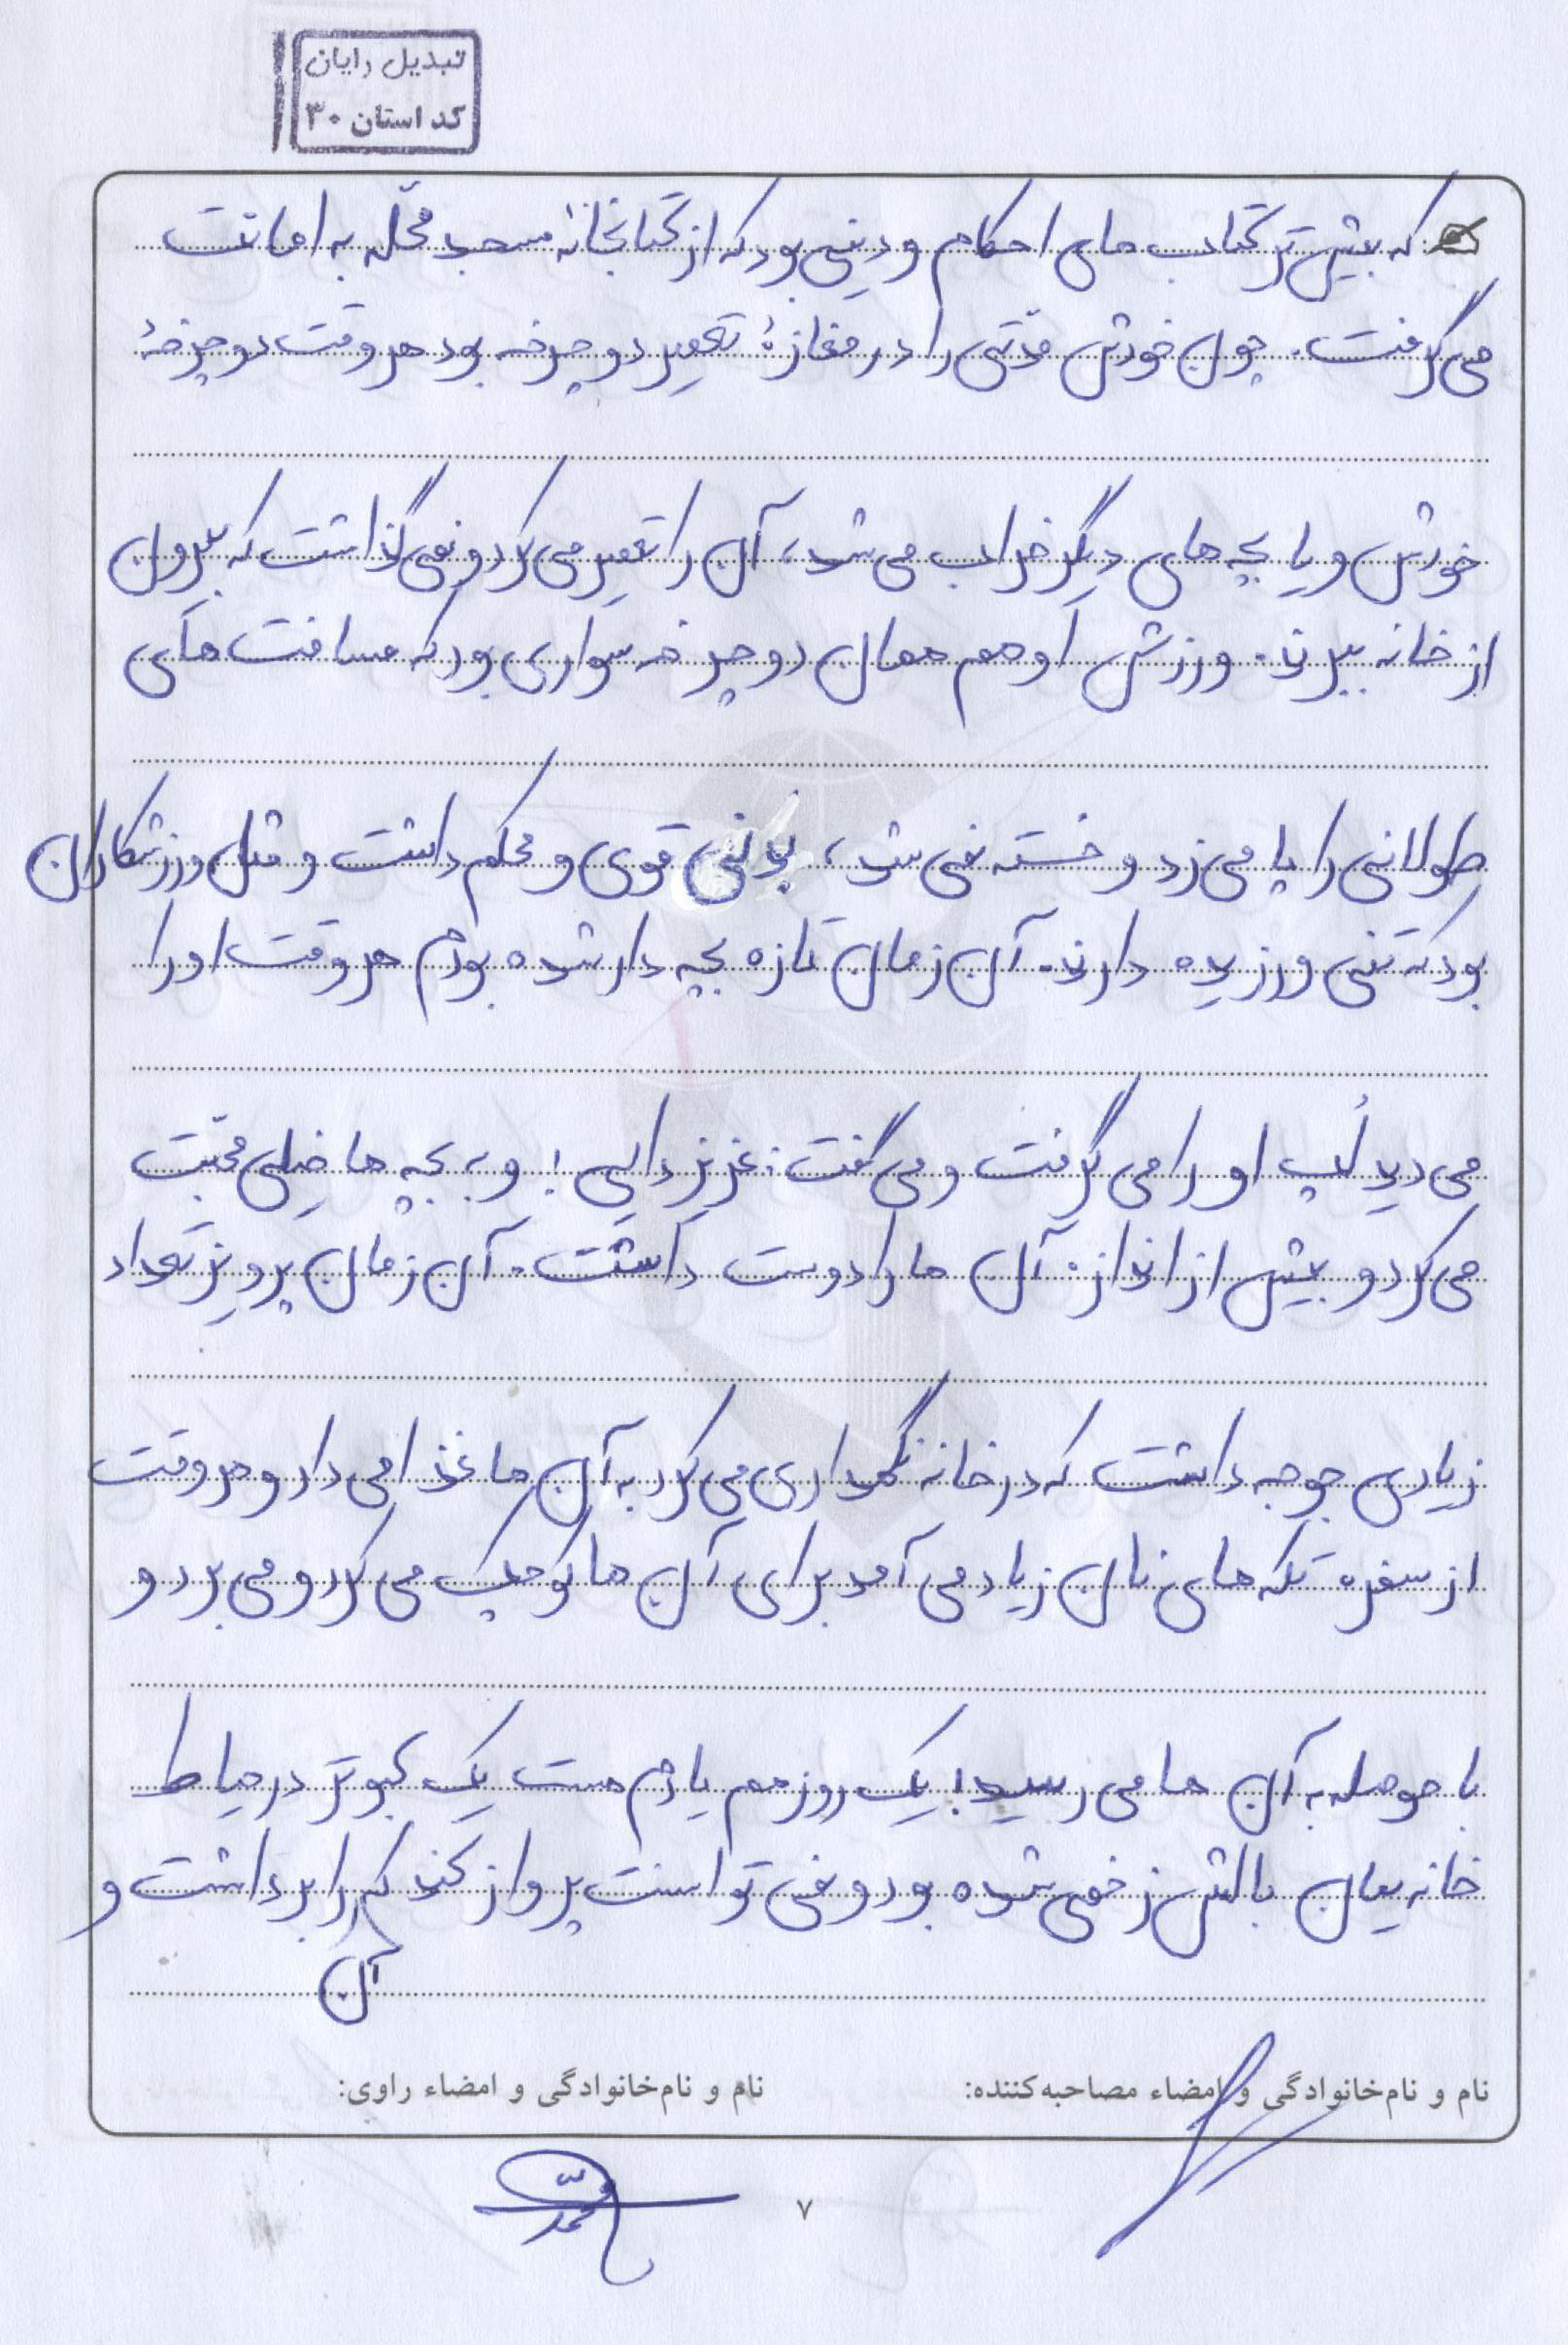 تبدیل رایان
کد استان ۳۰
که بیش‌تر کتاب های احکام و دینی بود که از کتابخانهٔ مسجد محلّه به امانت
می‌گرفت. چون خودش مدّتی را در مغازهٔ تعمیر دوچرخه بود هر وقت دوچرخهٔ
خودش و یا بچه های دیگر خراب می شد، آن را تعمیر می کرد و نمی گذاشت که بیرون
از خانه ببرند. ورزش او هم همان دوچرخه سواری بود که مسافت های
طولانی را پا می زد و خسته نمی شد، بدنی قوی و محکم داشت و مثل ورزشکاران
بود که تنی ورزیده دارند. آن زمان تازه بچه دار شده بودم هر وقت او را
می دید لُپ او را می گرفت و می گفت: عزیز دایی! و به بچه ها خیلی محبّت
می کرد و بیش از اندازه آن ها را دوست داشت. آن زمان پرویز تعداد
زیادی جوجه داشت که در خانه نگهداری می کرد به آن ها غذا می داد و هر وقت
از سفره تکه های نان زیاد می آمد برای آن ها کوچک می کرد و می برد و
با حوصله به آن ها می رسید! یک روز هم یادم هست یک کبوتر در حیاط
خانه یمان بالش زخمی شده بود و نمی توانست پرواز کند که آن را برداشت و
نام و نام‌خانوادگی و امضاء مصاحبه‌کننده:
نام و نام‌خانوادگی و امضاء راوی:
۷